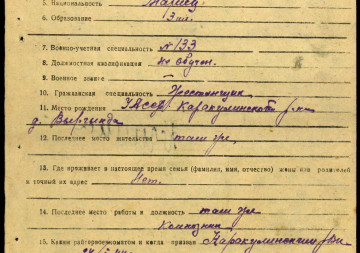 5. Национальность Мариец
6. Образование 3 кл.
7. Военно-учетная специальность № 133
8. Должностная квалификация не обучен.
9. Военное звание —
10. Гражданская специальность Крестьянщик
11. Место рождения УАССР, Каракулинского р-на
д.
12. Последнее место жительства там же,
13. Где проживает в настоящее время семья (фамилия, имя, отчество) жены или родителей
и точный их адрес Нет.
14. Последнее место работы и должность там же
Колхозник
15. Каким райгорвоенкоматом и когда призван Каракулинским РВК